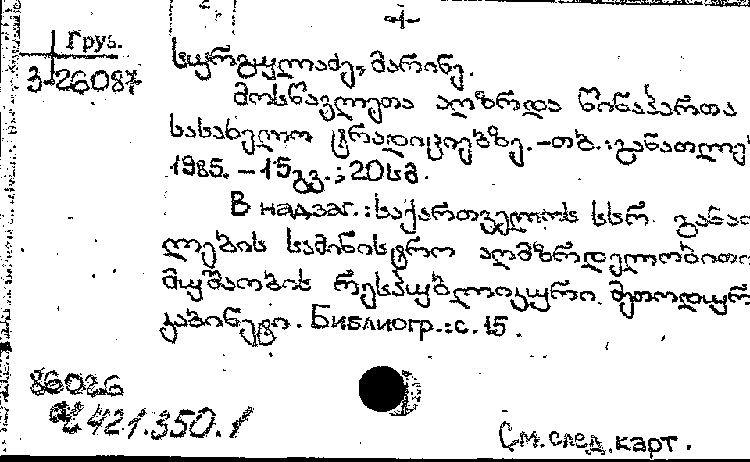 Груз.
3-26087
სურგულაძე, მარინე.
მოსწავლეთა აღზრდა წინაპართა
სასახელო ტრადიციებზე. – თბ.: განათლებ
1985. – 15 გვ.; 20 სმ.
В надзаг.: საქართველოს სსრ განათ
ლების სამინისტრო აღმზრდელობითი
მუშაობის რესპუბლიკური მეთოდურ
კაბინეტი. Библиогр.: с. 15.
86026
Ч 421.350.1
См. след. карт.